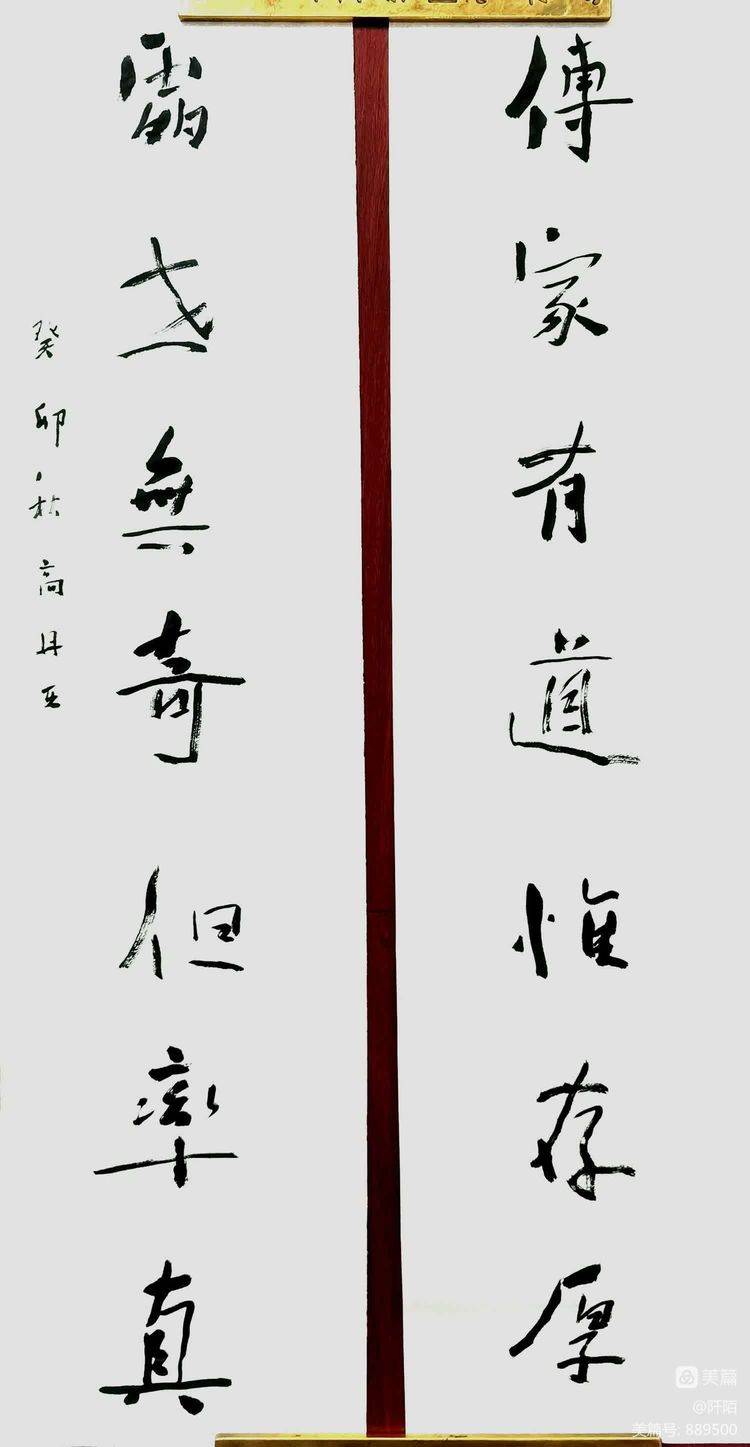 傳家有道惟存厚
處世無奇但率真
癸卯秋高
美篇
@阡陌
美篇号: 889500